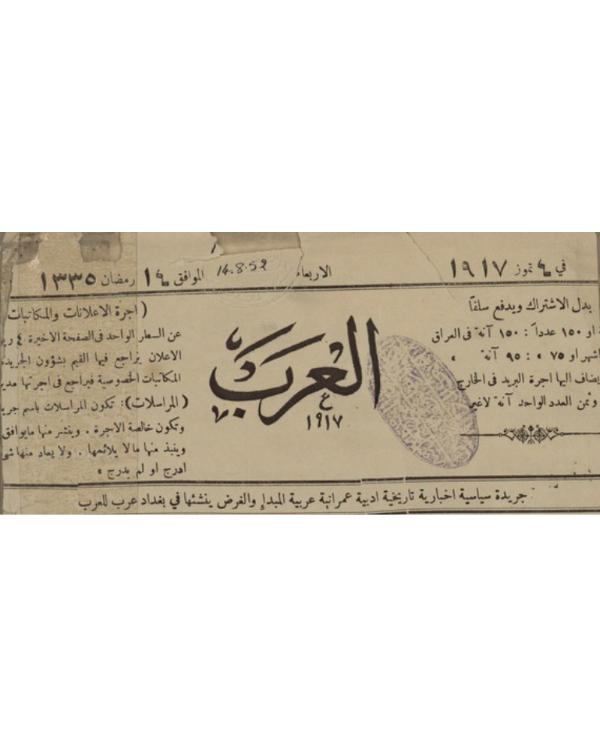 في ٤ تموز ١٩١٧ الاربعاء 14.8.52 الموافق ١٤ رمضان ١٣٣٥
بدل الاشتراك ويدفع سلفا
او ١٥٠ عدداً : ١٥٠ آنة فى العراق
اشهر او ٧٥ » : ٩٥ آنة »
ويضاف اليها اجرة البريد فى الخارج
وثمن العدد الواحد آنة لاغير
العرب
١٩١٧ ع
( اجرة الاعلانات والمكاتبات
عن السطر الواحد فى الصفحة الاخيرة ٤
الاعلان يراجع فيها القيم بشؤون الجريدة
المكاتبات الخصوصية فيراجع فى اجرتها
( المراسلات ) : تكون المراسلات باسم
وتكون خالصة الاجرة . وينشر منها مايوافق
وينبذ منها مالا يلائمها . ولا يعاد منها
ادرج او لم يدرج *
جريدة سياسية اخبارية تاريخية ادبية عمرانية عربية المبدإ والغرض ينشئها في بغداد عرب للعرب